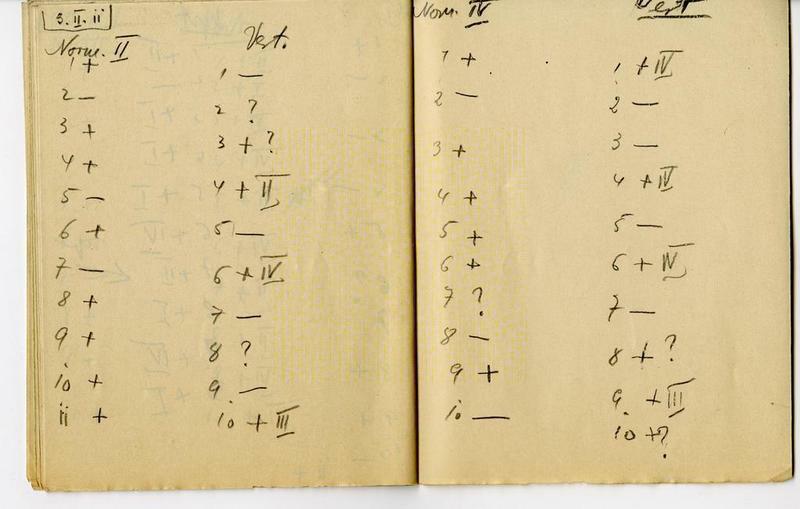 3.II.ii
Norm. II
1 +
2 —
3 +
4 +
5 —
6 +
7 —
8 +
9 +
10 +
ii +
Vert.
1 —
2 ?
3 + ?
4 + II
5 —
6 + IV
7 —
8 ?
9. —
10 + III
Norm. IV
1 +
2 —
3 +
4 +
5 +
6 +
7 ?
8 —
9 +
10 —
Vert
1 + IV
2 —
3 —
4 + IV
5 —
6 + IV
7 —
8 + ?
9. + III
10 + ?